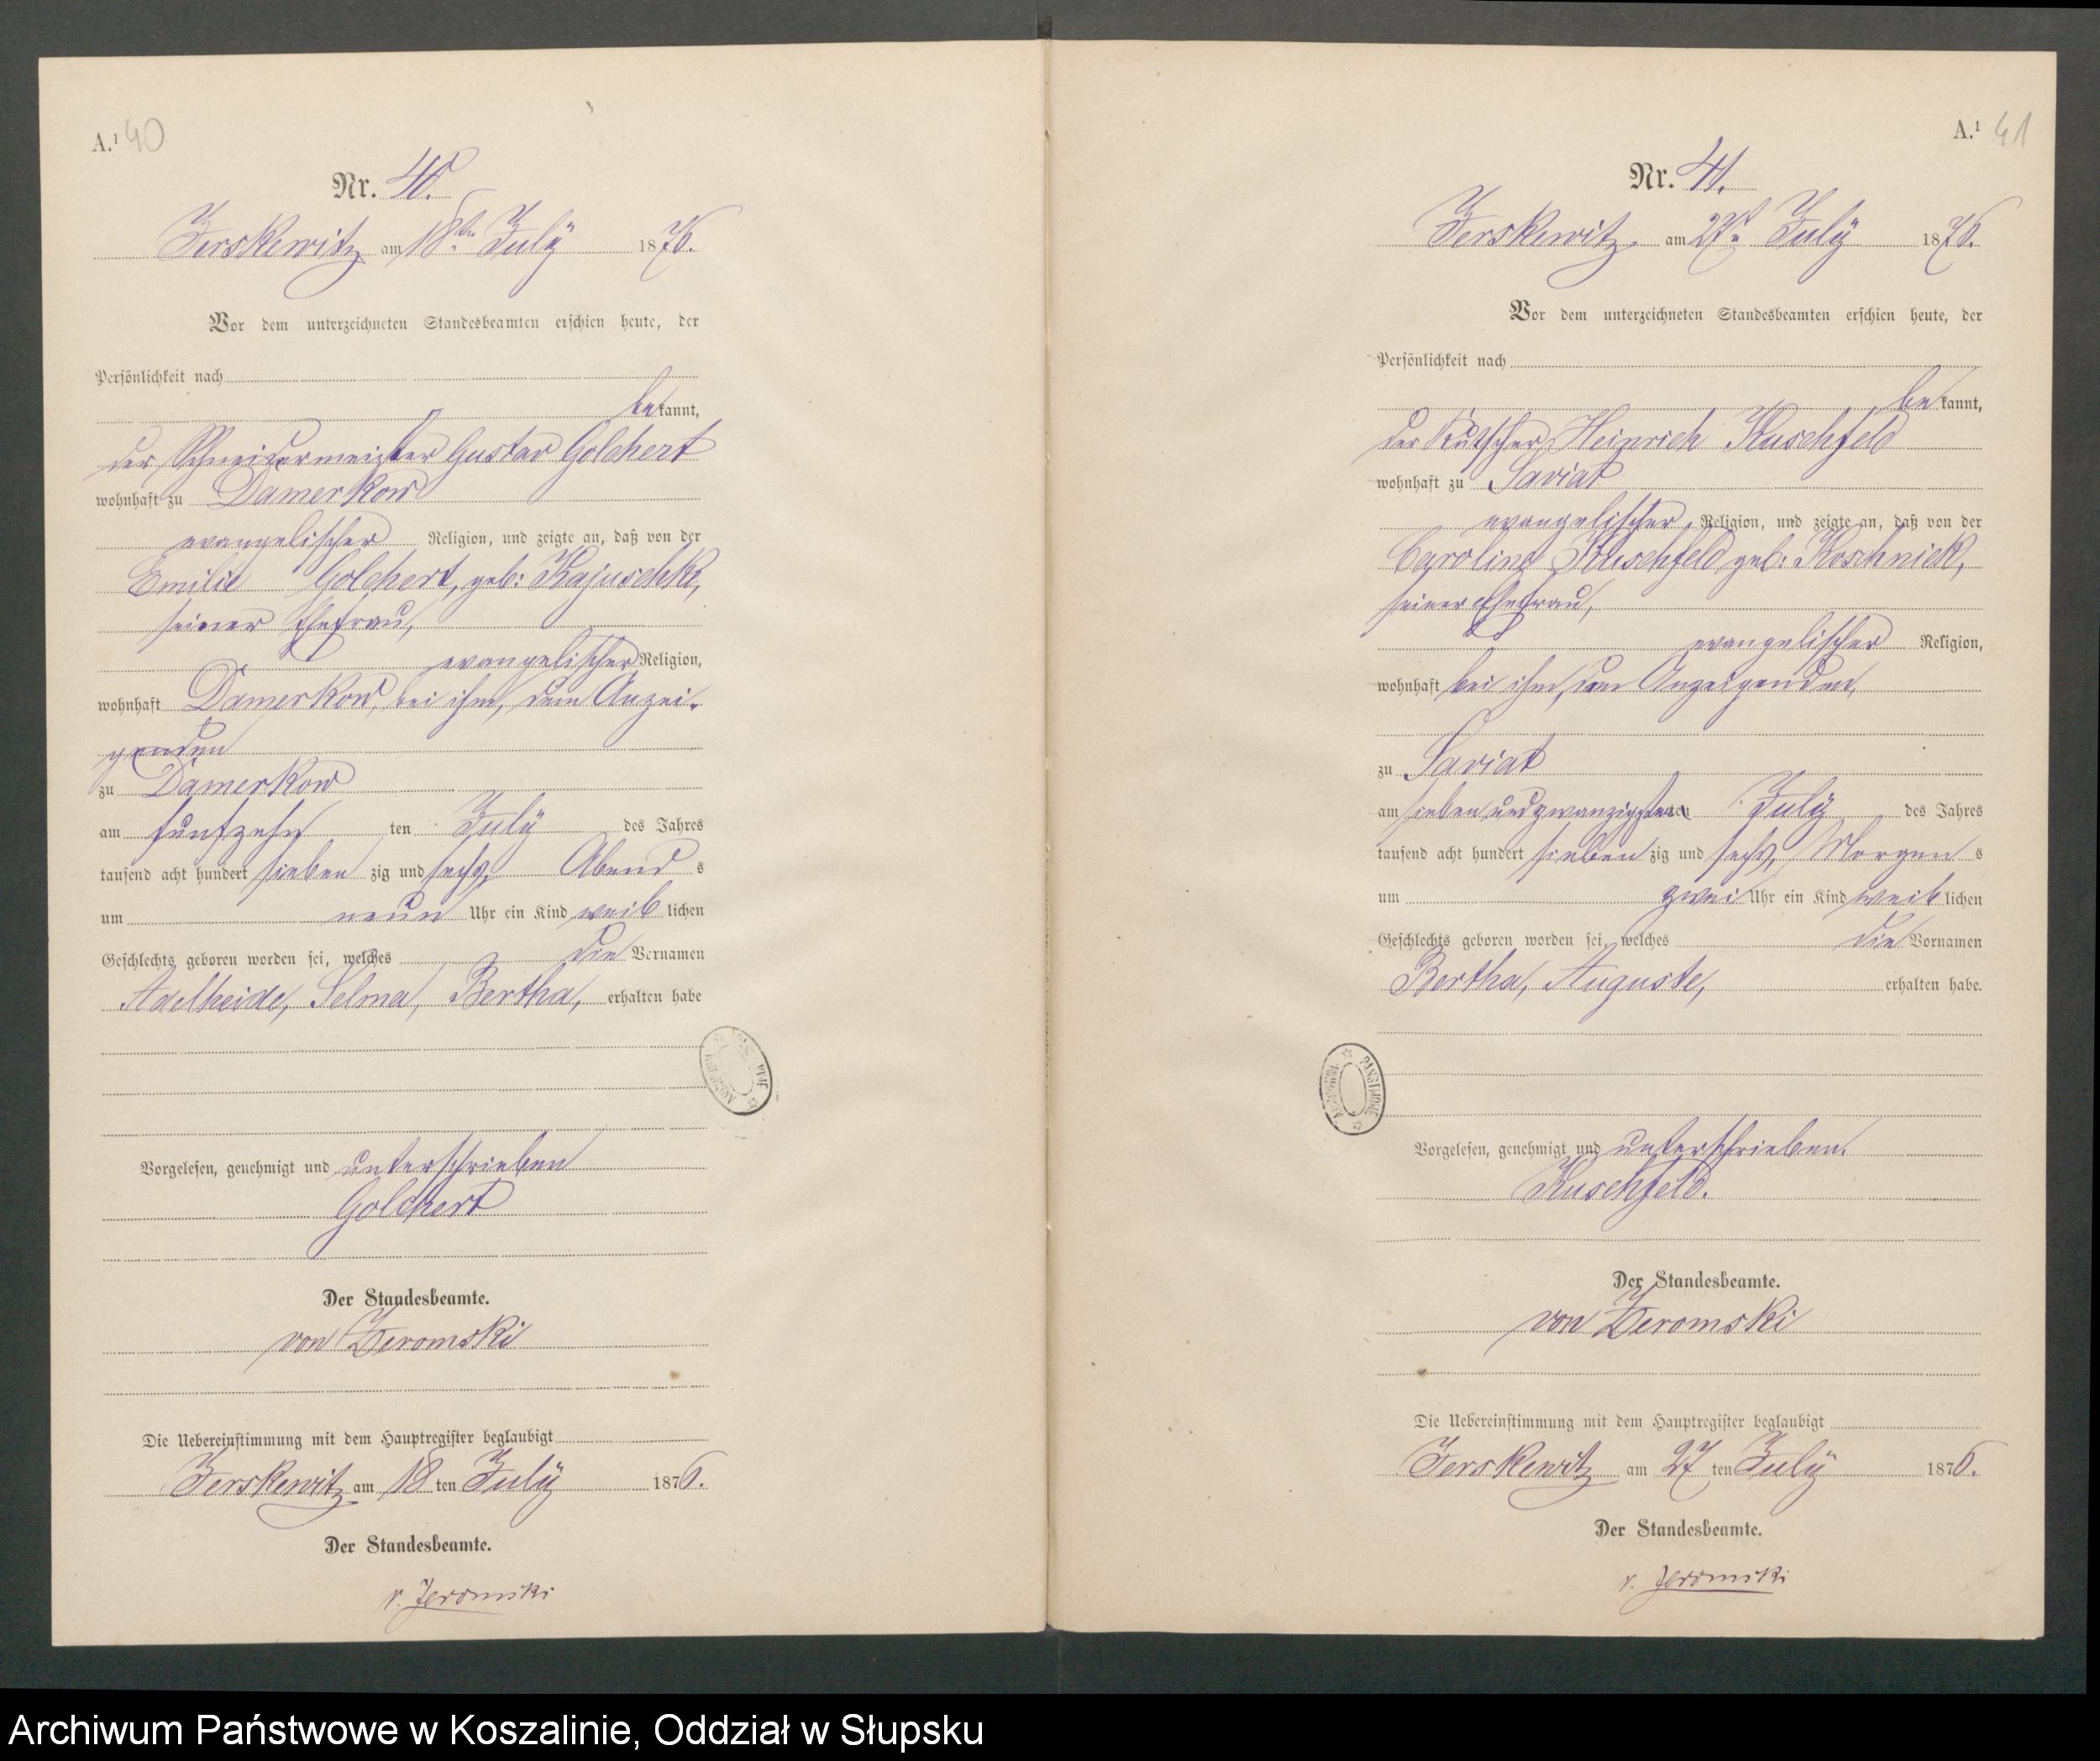 A.¹ 40
Nr. 40.
Jerskewitz am 18ten July 1876.
Vor dem unterzeichneten Standesbeamten erschien heute, der
Persönlichkeit nach
bekannt,
der Schneidermeister Gustav Golchert
wohnhaft zu Damerkow
evangelischer Religion, und zeigte an, daß von der
Emilie Golchert, geb: Kajuschke,
seiner Ehefrau,
evangelischer Religion,
wohnhaft Damerkow, bei ihm, dem Anzei-
genden
zu Damerkow
am fünfzehn ten July des Jahres
tausend acht hundert sieben zig und sechs, Abend s
um neun Uhr ein Kind weib lichen
Geschlechts geboren worden sei, welches die Vornamen
Adelheide, Selma, Bertha, erhalten habe
Vorgelesen, genehmigt und unterschrieben
Golchert
Der Standesbeamte.
von Jeromski
Die Uebereinstimmung mit dem Hauptregister beglaubigt
Jerskewitz am 18 ten July 1876.
Der Standesbeamte.
v. Jeromski
A.¹ 41
Nr. 41.
Jerskewitz, am 27t July 1876.
Vor dem unterzeichneten Standesbeamten erschien heute, der
Persönlichkeit nach
bekannt,
der Kutscher Heinrich Kuschfeld
wohnhaft zu Saviat
evangelischer Religion, und zeigte an, daß von der
Caroline Kuschfeld geb: Koschnick,
seiner Ehefrau,
evangelischer Religion,
wohnhaft bei ihm, dem Anzeigenden,
zu Saviat
am sieben und zwanzigsten July des Jahres
tausend acht hundert sieben zig und sechs, Morgen s
um zwei Uhr ein Kind weib lichen
Geschlechts geboren worden sei, welches die Vornamen
Bertha, Auguste, erhalten habe.
Vorgelesen, genehmigt und unterschrieben.
Kuschfeld.
Der Standesbeamte.
von Jeromski
Die Uebereinstimmung mit dem Hauptregister beglaubigt
Jerskewitz am 27 ten July 1876.
Der Standesbeamte.
v. Jeromski
Archiwum Państwowe w Koszalinie, Oddział w Słupsku